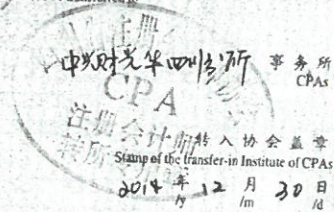 中兴财光华四川分所 事务所
CPAs
CPA
注册会计师
转入协会盖章
Stamp of the transfer-in Institute of CPAs
2014 年 12 月 30 日
/y /m /d